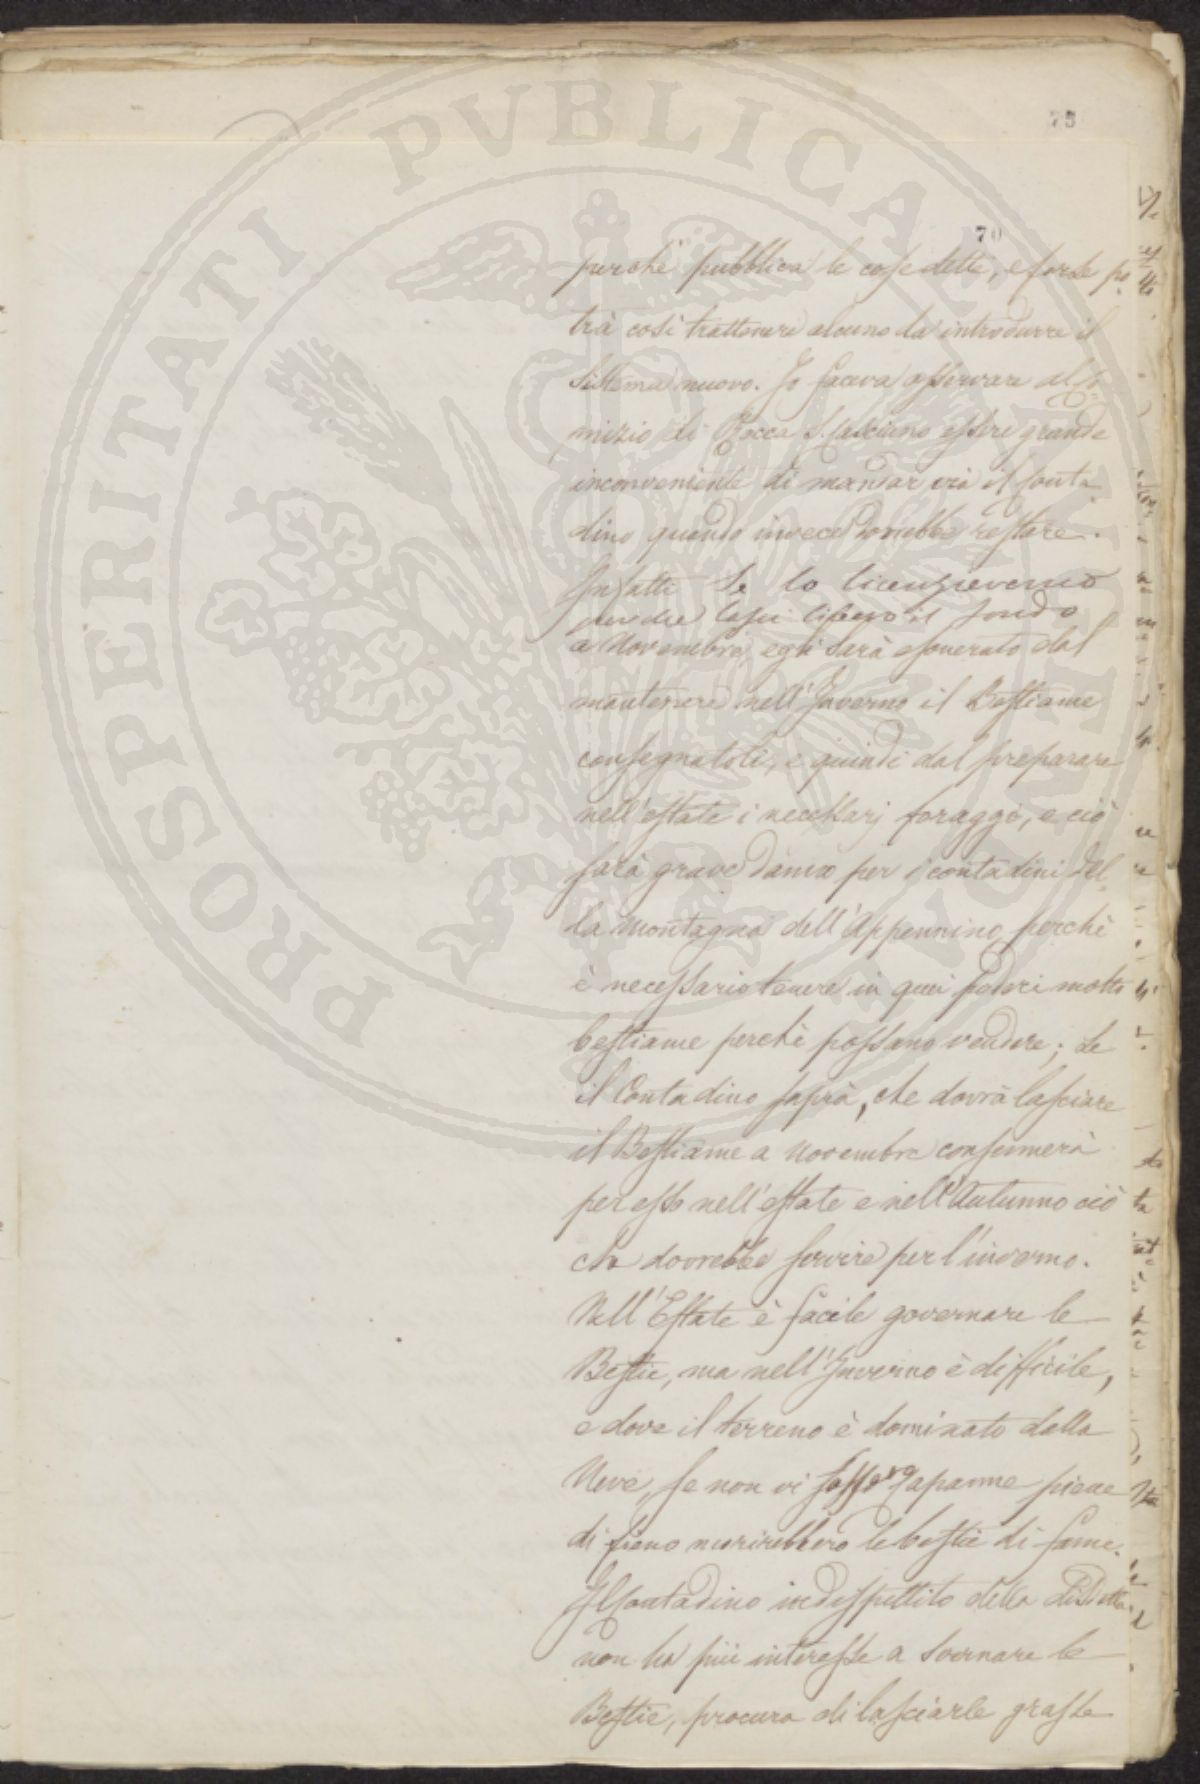 PROSPERITATI PVBLICAE
75
70
perchè pubblica le cose dette, e forse po-
trà così trattenere alcuno da introdurre il
sistema nuovo. Io faceva osservare al Co-
mizio di Rocca S. Casciano essere grande
inconveniente di mandar via il Conta
dino quando invece dovrebbe restare.
Infatti se lo licenzieremo
perchè lasci libero il fondo
a Novembre, egli sarà esonerato dal
mantenere nell'Inverno il Bestiame
consegnatoli, e quindi dal preparare
nell'estate i necessarj foraggi, e ciò
sarà grave danno per i contadini del-
la Montagna dell'Appennino perchè
è necessario tenere in quei poderi molto
bestiame perchè possano vendere; se
il Contadino saprà, che dovrà lasciare
il Bestiame a Novembre consumerà
per esso nell'estate e nell'Autunno ciò
che dovrebbe servire per l'inverno.
Nell'Estate è facile governare le
Bestie, ma nell'Inverno è difficile,
e dove il terreno è dominato dalla
Neve, se non vi fossero Capanne piene
di fieno morirebbero le bestie di fame.
Il Contadino indispettito della disdetta
non ha più interesse a svernare le
Bestie, procura di lasciarle grasse